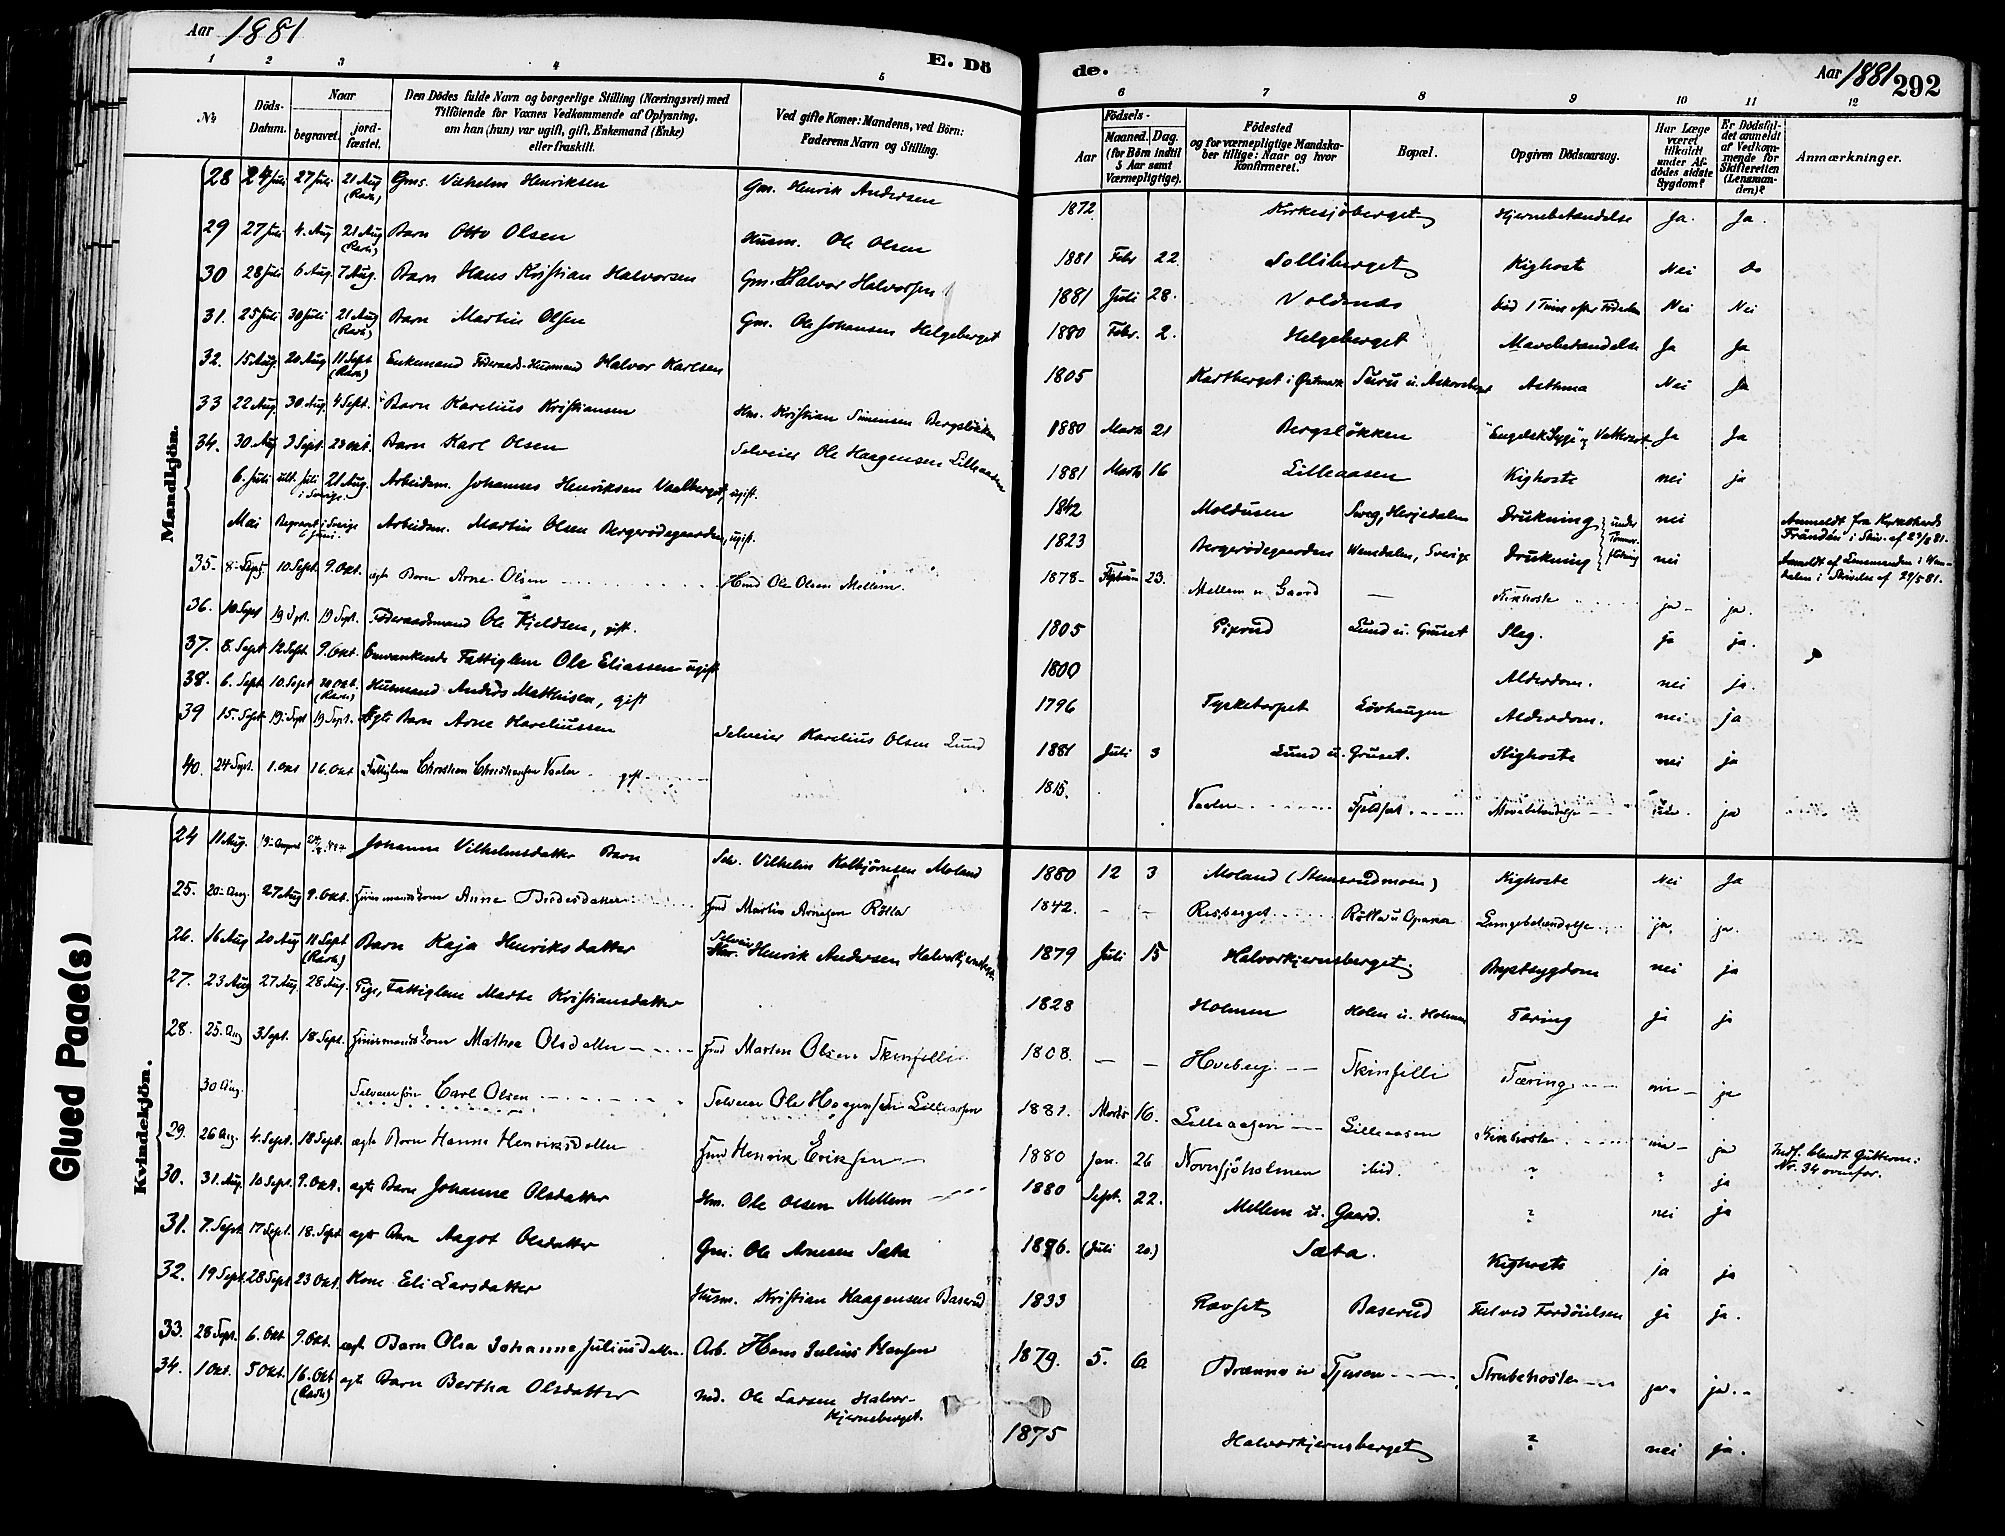 Aar 1881
E. Dö
de.
Aar 1881 292
1 2 3 4 5 6 7 8 9 10 11 12
No
Döds-Datum.
Naar
begravet.
jord-fæstet.
Den Dödes fulde Navn og borgerlige Stilling (Næringsvei) med
Tilföiende for Voxnes Vedkommende af Oplysning,
om han (hun) var ugift, gift, Enkemand (Enke)
eller fraskilt.
Ved gifte Koner: Mandens, ved Börn:
Faderens Navn og Stilling.
Födsels-
Aar
Maaned.
Dag.
(for Børn indtil
5 Aar samt
Værnepligtige).
Födested
og for værnepligtige Mandska-
ber tillige: Naar og hvor
konfirmeret.
Bopæl.
Opgiven Dödsaarsag.
Har Læge
været
tilkaldt
under Af-
dödes sidste
Sygdom?
Er Dödsfal-
det anmeldt
af Vedkom-
mende for
Skifteretten
(Lensman-
den)?
Anmærkninger.
Mandkjön.
28 24 Juli 27 Juli 21 Aug (Rasta) Gms. Vilhelm Henriksen Gm. Henrik Andersen 1872 Kirkesjöberget Hjernebetændelse Ja. Ja.
29 27 Juli 4. Aug 21 Aug Barn Otto Olsen Husm. Ole Olsen 1881 Febr 22. Solliberget Kighoste Nei Do
30 28 Juli 6 Aug. 7 Aug. Barn Hans Kristian Halvorsen Gm. Halvor Halvorsen 1881 Juli 28. Voldnæs död 1 Time efter Födselen Nei Nei
31. 25 Juli 30 Juli 21 Aug Barn Martin Olsen Gm. Ole Johansen Helgeberget 1880 Febr. 2. Helgeberget Mavebetændelse Ja Ja
32. 15 Aug. 20 Aug 11 Sept Enkemand Föderaads-Husmand Halvor Karlsen 1805 i Östmark Asthma Nei Ja
33 22 Aug 30 Aug 4 Sept. Barn Karelius Kristiansen Hm. Kristian Simensen Bergslökken 1880 Marts 21 Bergslökken "Engelsk Syge" og Ja Ja
34. 30 Aug 3 Sept. 23 Okt. Barn Karl Olsen Selveier Ole Haagensen Lilleaasen 1881 Marts 16 Lilleaasen Kighoste nei ja
6. Juli ult. Juli i Sverige 21 Aug. Arbeidsm. Johannes Henriksen Vaalberget, ugift. 1842 Moldusen Sveg, Herjedalen Drukning under Tømmerflötning nei Anmeldt fra
i Skriv. af 29/8 81.
Mai Begravet i Sverige 6 Juni. Arbeidsm. Martin Olsen Bergerödegaarden, ugift. 1823 Bergerödegaarden Sverige Drukning nei Anmeldt af Lensmanden i
i Skrivelse af 29/5 81.
35. 8. Sept. 10 Sept. 9. Okt. ægte Barn Arne Olsen Hmd Ole Olsen Mellem. 1878 Septbr 23. Mellem u. Gaard — Kikhoste ja ja.
36. 10 Sept 19 Sept. 19 Sept. Föderaadsmand Ole Kjeldsen, gift. 1805 Pixrud Lund u. Gruset Slag. ja ja.
37. 8. Sept 12 Sept. 9. Okt. Omvankende Fattiglem Ole Eliassen ugift 1800 Alderdom. nei ja.
38. 6. Sept 10. Sept Husmand Anders Mathisen, gift 1796 Tysketorpet Lövhaugen Alderdom. nei ja
39 15. Sept 19. Sept 19 Sept. ægte Barn Arne Kareliussen Selveier Karelius Olsen Lund 1881 Juli 3 Lund u. Gruset. Kighoste nei ja
40. 24 Sept. 1. Okt 16. Okt Fattiglem Christian Christiansen Vaaler gift 1815. Vaaler Mavebetændelse ja
Kvindekjön.
24 11 Aug. 19. August Johanne Vilhelmsdatter Barn Vilhelm Kolbjörnsen Moland 1880 12 3 Moland (Stensrudmoen) Kighoste Nei Ja
25. 20. Aug. 27 Aug 9. Okt. Husmandskone Anne Hmd Martin Arnesen Rötta 1842. — — Risberget Rötta u Opaker Lungebetændelse ja. ja.
26. 16 Aug 20 Aug 11 Sept Barn Kaja Henriksdatter Selveier Henrik Andersen Halvorkjernsberget 1879 Juli 15 Halvorkjernsberget. Brystsygdom nei ja
27. 23 Aug 27 Aug. 28 Aug. Pige, Fattiglem Marte Kristiansdatter 1828 Holmen Holen u. Holmen Tæring ja ja
28. 25. Aug 3 Sept. 18 Sept. Husmandskone Mathea Olsdatter Hmd Morten Olsen Skinfelli 1808. — — Hveberg Skinfelli Tæring nei ja
30 Aug. Selveiersön Carl Olsen Selveier Ole Haagensen Lilleaasen 1881. Marts 16. Lilleaasen Lilleaasen Kikhoste nei ja Indf. blandt Guttene:
Nr. 34 ovenfor.
29. 26 Aug. 4. Sept. 18 Sept. ægte Barn Hanna Henriksdatter Hmd Henrik Eriksen 1880 Jan. 26 ibid. ? ? ja
30. 31. Aug. 10 Sept. 9. Okt. ægte Barn Johanne Olsdatter Hm. Ole Olsen Mellem 1880 Sept. 22. Mellem u. Gaard. ? nei ja
31. 7. Sept 17 Sept. 18. Sept ægte Barn Aagot Olsdatter Gm. Ole Arnesen Sæta 1876. (Juli 20.) Sæta. Kighoste ja ja
32. 19 Sept. 28 Sept 23 Okt. Kone Eli Larsdatter Husm. Kristian Haagensen Baserud 1833 Ravset Baserud Feil ved Fordöielsen ja ja.
33. 28 Sept. 6. Okt. 9. Okt. ægte Barn Olea Johanne Juliusdatter. Arb. Hans Julius Hansen 1879. 5. 6 Strubehoste ja. ja.
34. 1 Okt. 5 Okt. 16. Okt ægte Barn Bertha Olsdatter Ole Larsen Halvor-
kjernsberget. 1875 Halvorkjernsberget ? nei ja.
Glued Page(s)